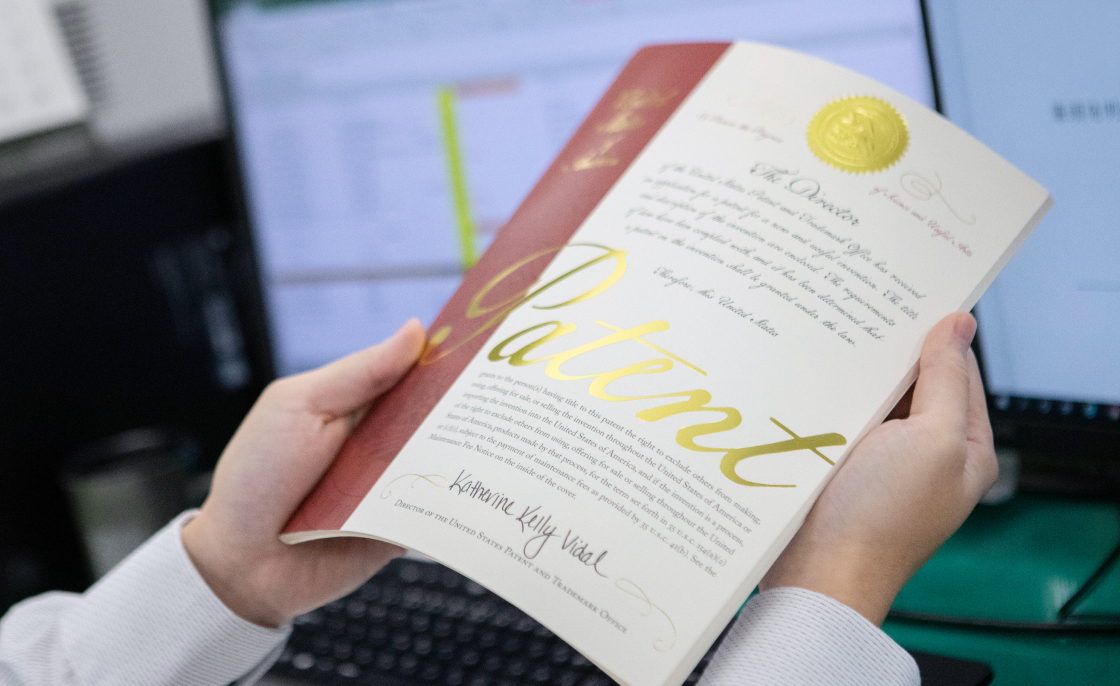 To Promote the Progress
of Science and Useful Arts
The Director
of the United States Patent and Trademark Office has received
an application for a patent for a new and useful invention. The title
and description of the invention are enclosed. The requirements
of law have been complied with, and it has been determined that
a patent on the invention shall be granted under the law.
Therefore, this United States
Patent
grants to the person(s) having title to this patent the right to exclude others from making,
using, offering for sale, or selling the invention throughout the United States of America or
importing the invention into the United States of America, and if the invention is a process,
of the right to exclude others from using, offering for sale or selling throughout the United
States of America, products made by that process, for the term set forth in 35 U.S.C. 154(a)(2)
or (c)(1), subject to the payment of maintenance fees as provided by 35 U.S.C. 41(b). See the
Maintenance Fee Notice on the inside of the cover.
Katherine Kelly Vidal
Director of the United States Patent and Trademark Office